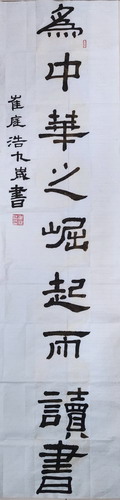 為中華之崛起而讀書
崔庭浩九歲書